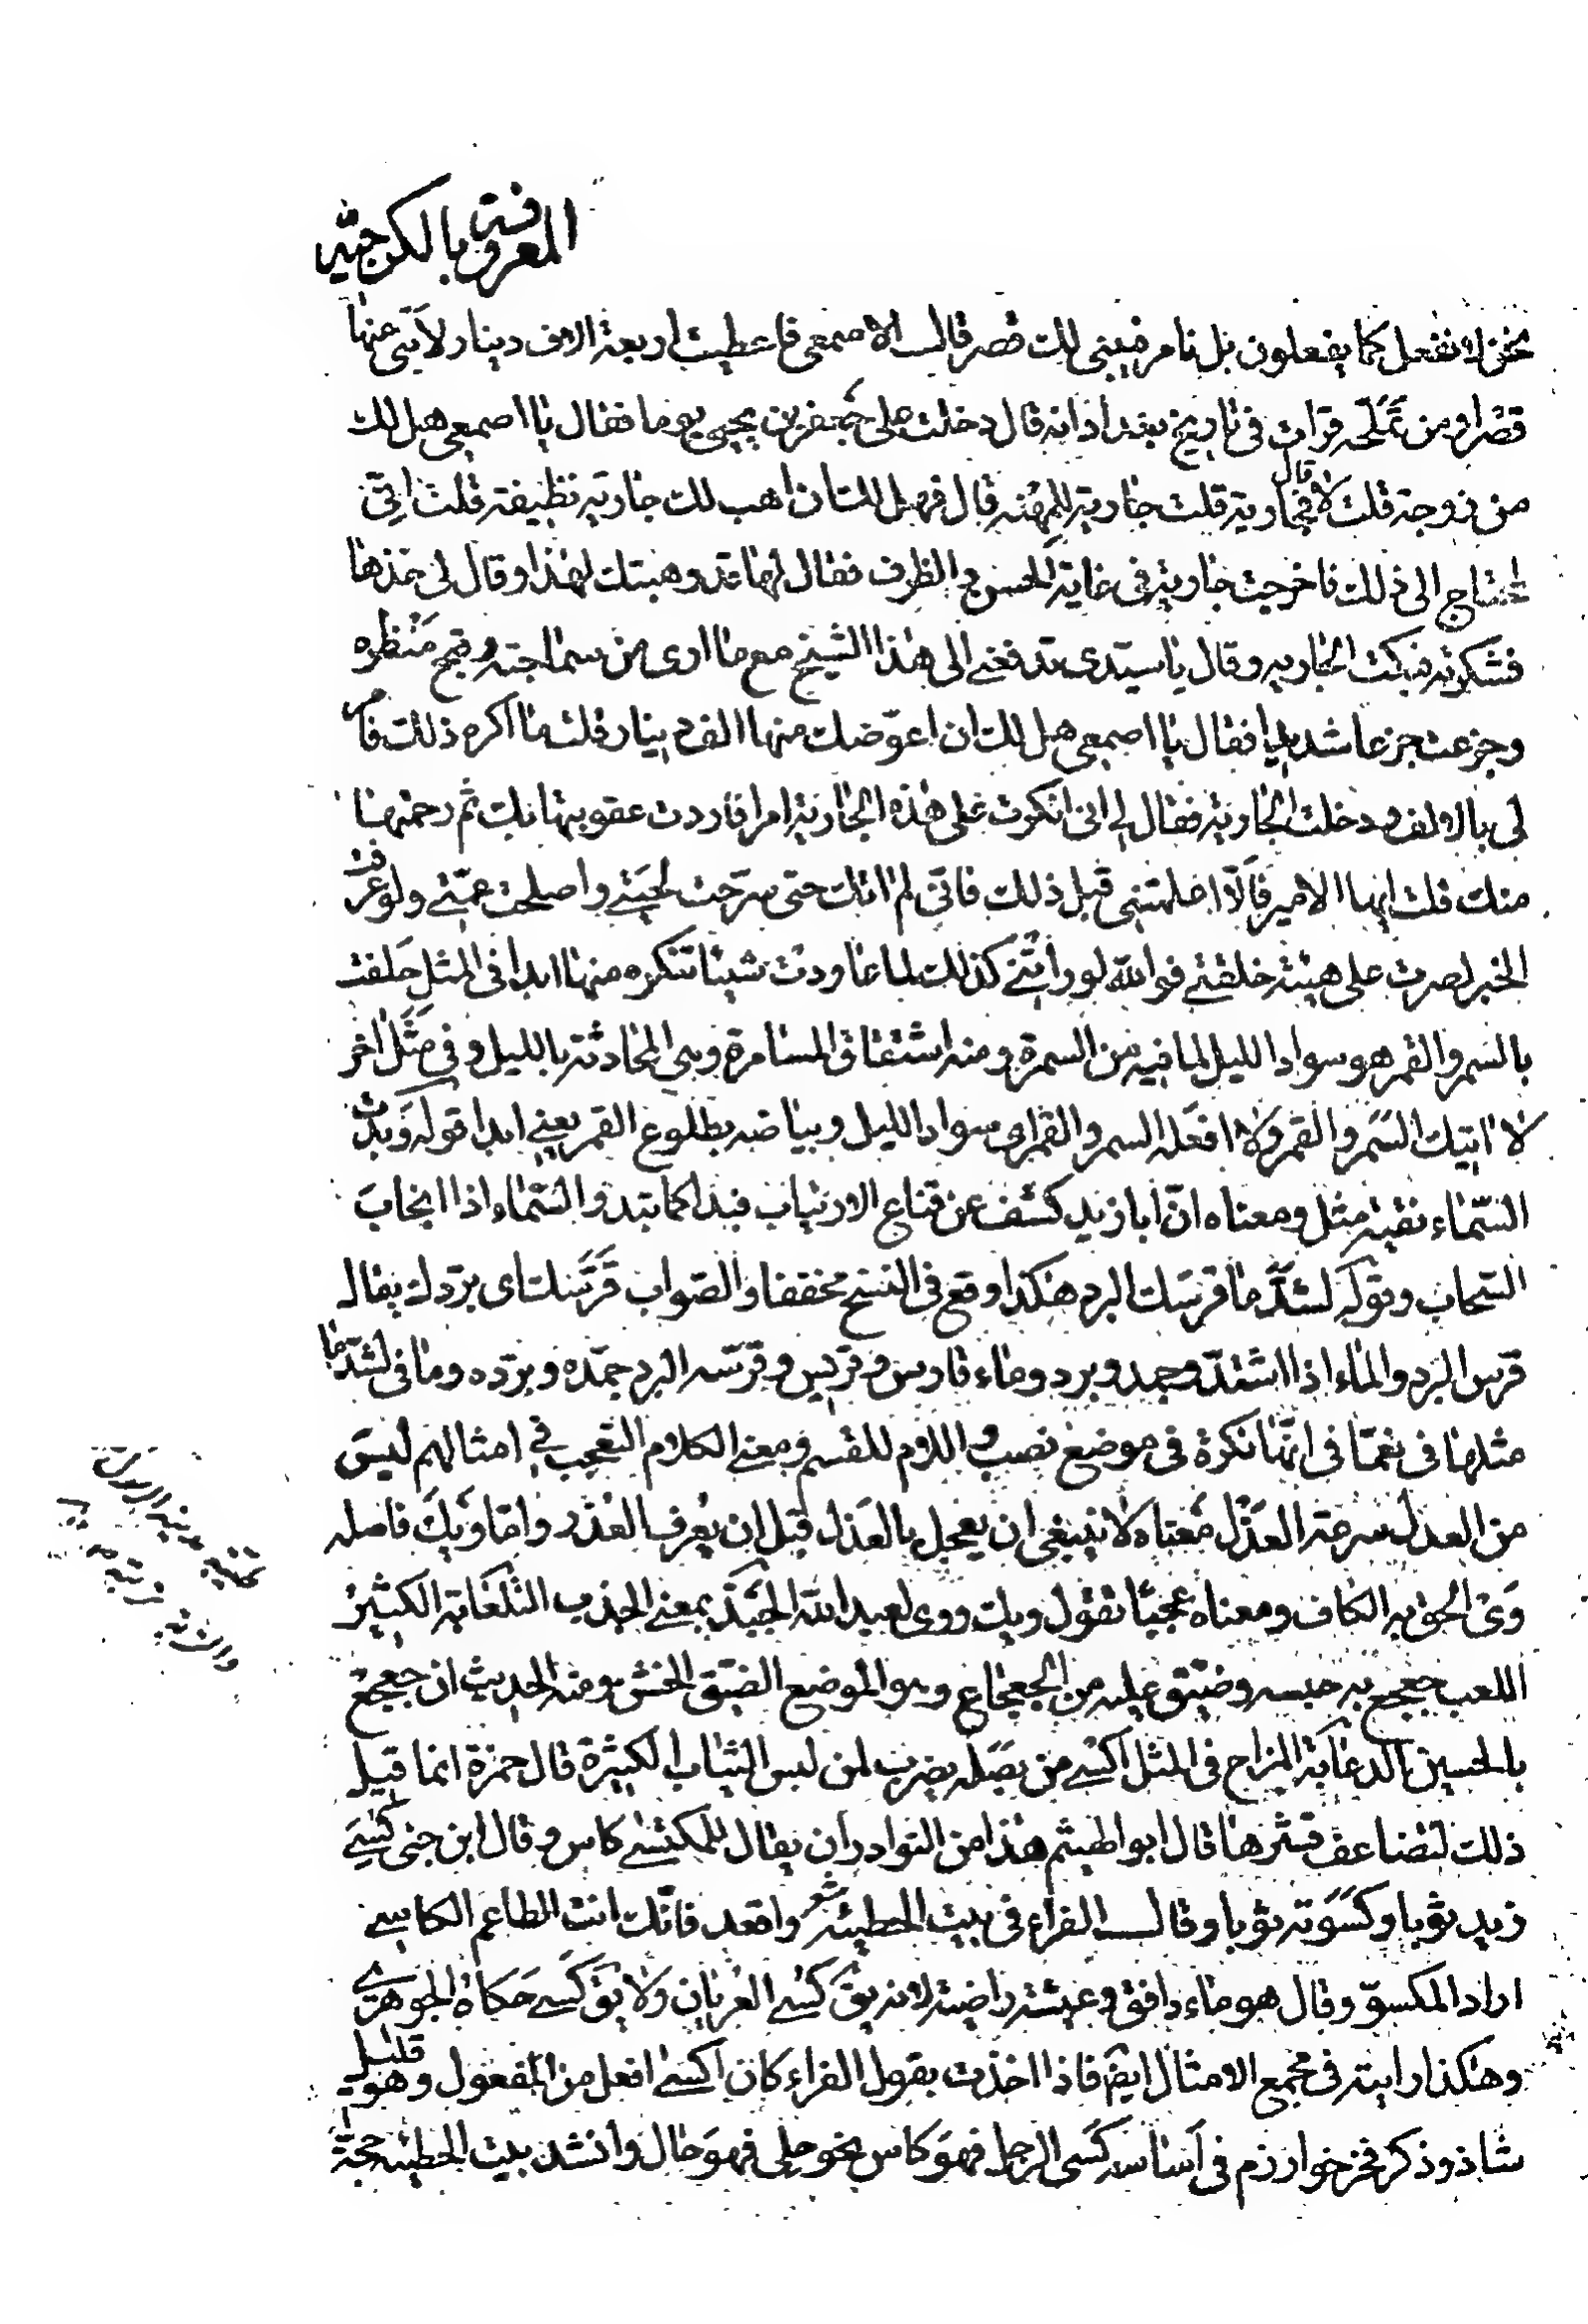 المعروفة بالكرجية
نحن لا نفعل كما يفعلون بل نامر فيبنى لك قصر قال الاصمعى فاعطيت اربعة الاف دينار لابنى منها
قصرا ومن تملحه قرات فى تاريخ بغداد انه قال دخلت على جعفر بن يحيى يوما فقال يا اصمعى هل لك
من زوجة قلت لا قال فجارية قلت جارية للمهنة قال فهل لك ان اهب لك جارية نظيفة قلت انى
لمحتاج الى ذلك فاخرجت جارية فى غاية الحسن والظرف فقال لها قد وهبتك لهذا وقال لى خذها
فشكرته فبكت الجارية وقال يا سيدى تدفعنى الى هذا الشيخ مع ما ارى من سماجته وقبح منظره
وجزعت جزعا شديدا فقال يا اصمعى هل لك ان اعوضك منها الف دينار قلت ما اكره ذلك فامر
لى بالالف ودخلت الجارية فقال لى انى انكرت على هذه الجارية امرا فاردت عقوبتها بك ثم رحمتها
منك قلت ايها الامير فالا اعلمتنى قبل ذلك فانى لم اتك حتى سرحت لحيتى واصلحت عمتى ولو عرفت
الخبر لصرت على هيئة خلقتى فو الله لو راتنى كذلك لما عاودت شيئا تنكره منها ابدا فى المثل حلفت
بالسمر والقمر هو سواد الليل لما فيه من السمرة ومنه اشتقاق المسامرة وهى المحادثة بالليل وفى مثل اخر
لا اتيك السمر والقمر ولا افعله السمر والقمر اى سواد الليل وبياضه بطلوع القمر يعنى ابدا قوله وبدت
السماء نقية مثل ومعناه ان ابا زيد كشف عن قناع الارتياب فبدا كما تبدو السماء اذا انجاب
السحاب وقوله لشد ما قرسك البرد هكذا وقع فى النسخ مخففا والصواب قرسك اى بردك يقال
قرس البرد والماء اذا اشتد وجمد وبرد وماء قارس وقريس وقرسه البرد جمده وبرده وما فى لشد ما
مثلها فى نعما فى انها نكرة فى موضع نصب واللام للقسم ومعنى الكلام التعجب فى امثالهم ليس
من العدل سرعة العذل معناه لا ينبغى ان يعجل بالعذل قبل ان يعرف العذر واما ويك فاصله
وى الحق به الكاف ومعناه عجبا تقول ويك ووى لعبد الله الجبذ بمعنى الجذب التلعابة الكثير
اللعب جعجع به حبسه وضيق عليه من الجعجاع وهو الموضع الضيق الخشن ومنه الحديث ان جعجع
بالحسين الدعابة المزاح فى المثل اكسى من بصله يضرب لمن لبس الثياب الكثيرة قال حمزة انما قيل
ذلك لتضاعف قشرها قال ابو الهيثم هذا من النوادر ان يقال للمكتسى كاس وقال ابن جنى كسى
زيد ثوبا وكسوته ثوبا وقال الفراء فى بيت الحطيئة شعر واقعد فانك انت الطاعم الكاسى
اراد المكسو وقال هو ماء دافق وعيشة راضية لانه يق كسى العريان ولا يق كسى حكاه الجوهرى
وهكذا رايته فى مجمع الامثال ايضا فاذا اخذت بقول الفراء كان اكسى افعل من المفعول وهو قليل
شاذ وذكر فخر خوارزم فى اساسه كسى الرجل فهو كاس نحو حلى فهو حال وانشد بيت الحطيئة حجة